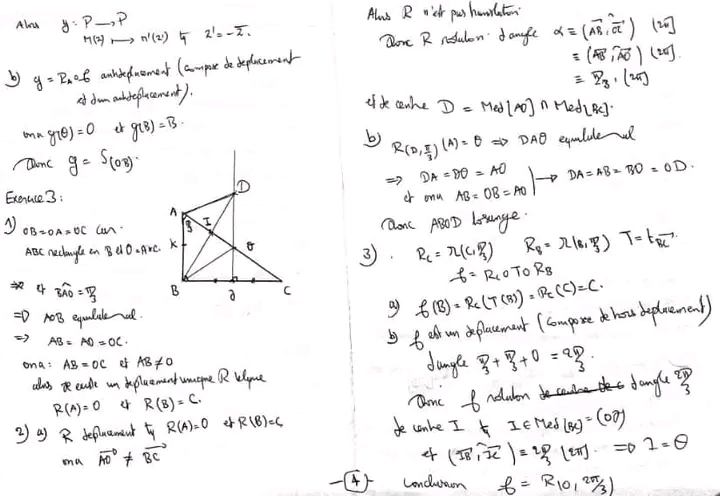 Alors g: P → P
M(z) ↦ M'(z') tq z' = -z̄.
b) g = R_A∘f antidéplacement (composé de déplacement
et d'un antidéplacement).
on a g(O) = O et g(B) = B.
Donc g = S(OB).
Exercice 3:
1) OB = OA = OC car
ABC rectangle en B et O = A*C.
et BAO = π/3
⇒ AOB équilatéral.
⇒ AB = AO = OC.
on a: AB = OC et AB ≠ 0
alors il existe un déplacement unique R tel que
R(A) = O et R(B) = C.
2) a) R déplacement tq R(A) = O et R(B) = C
on a AO ≠ BC
A
I
D
K
O
B
J
C
Alors R n'est pas translation.
Donc R rotation d'angle α ≡ (AB, OC) [2π]
≡ (AB, AO) [2π].
≡ π/3 [2π]
et de centre D = Med[AO] ∩ Med[BC].
b) R(D, π/3)(A) = O ⇒ DAO équilatéral
⇒ DA = DO = AO
et on a AB = OB = AO → DA = AB = BO = OD.
Donc ABOD losange.
3) . R_C = r(C, π/3) R_B = r(B, π/3) T = t_BC
f = R_C∘T∘R_B
a) f(B) = R_C(T(B)) = R_C(C) = C.
b) f est un déplacement (composé de trois déplacement)
d'angle π/3 + π/3 + 0 = 2π/3.
Donc f rotation d'angle 2π/3
de centre I tq I ∈ Med[BC] = (OJ)
et (IB, IC) ≡ 2π/3 [2π]. ⇒ I = O
Conclusion f = R(O, 2π/3)
-4-